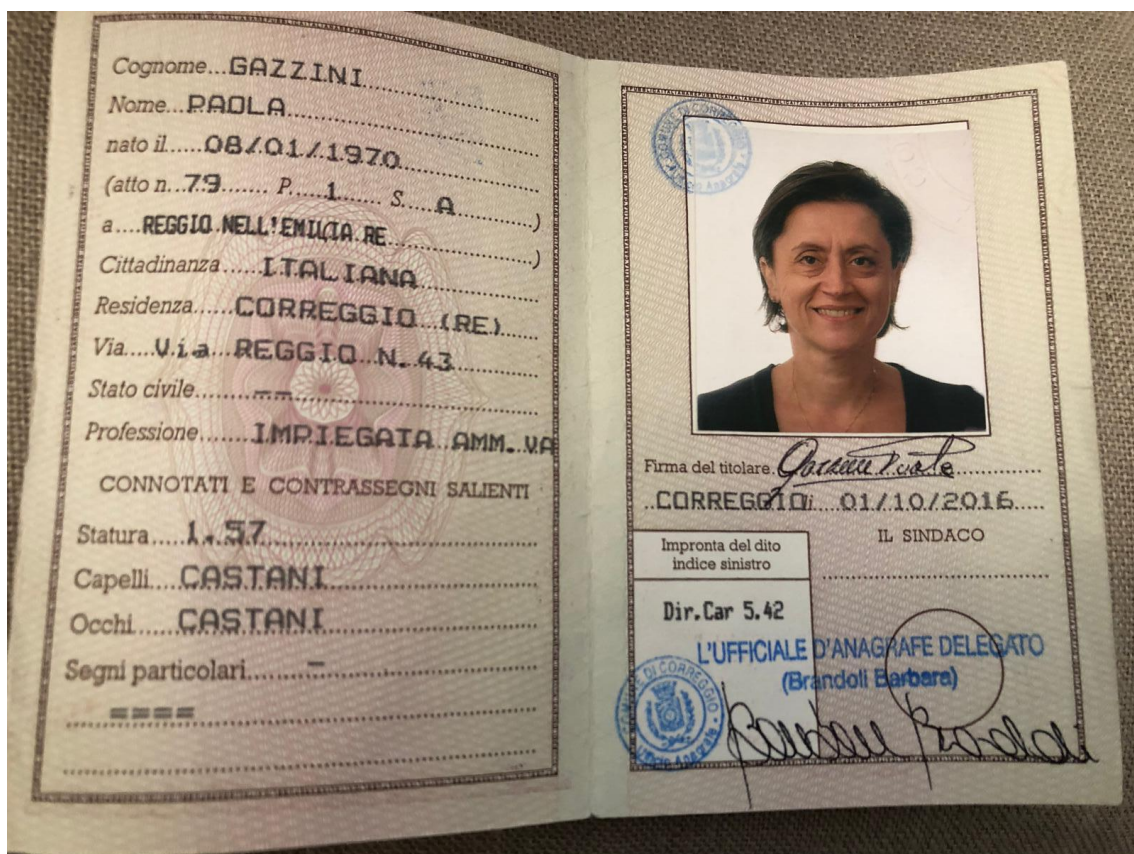 Cognome...GAZZINI
Nome...PAOLA
nato il.....08/01/1970
(atto n..79....... P.....1...... S.....A..........)
a....REGGIO NELL'EMILIA RE..................)
Cittadinanza......ITALIANA
Residenza......CORREGGIO (RE)
Via.....Via REGGIO N. 43
Stato civile.........==
Professione........IMPIEGATA AMM.VA
CONNOTATI E CONTRASSEGNI SALIENTI
Statura.....1.57
Capelli....CASTANI
Occhi.....CASTANI
Segni particolari.......–
====
COMUNE DI CORREGGIO
Ufficio Anagrafe
Firma del titolare
CORREGGIO lì 01/10/2016
IL SINDACO
Impronta del dito
indice sinistro
Dir.Car 5.42
L'UFFICIALE D'ANAGRAFE DELEGATO
(Brandoli Barbara)
COMUNE DI CORREGGIO
Ufficio Anagrafe